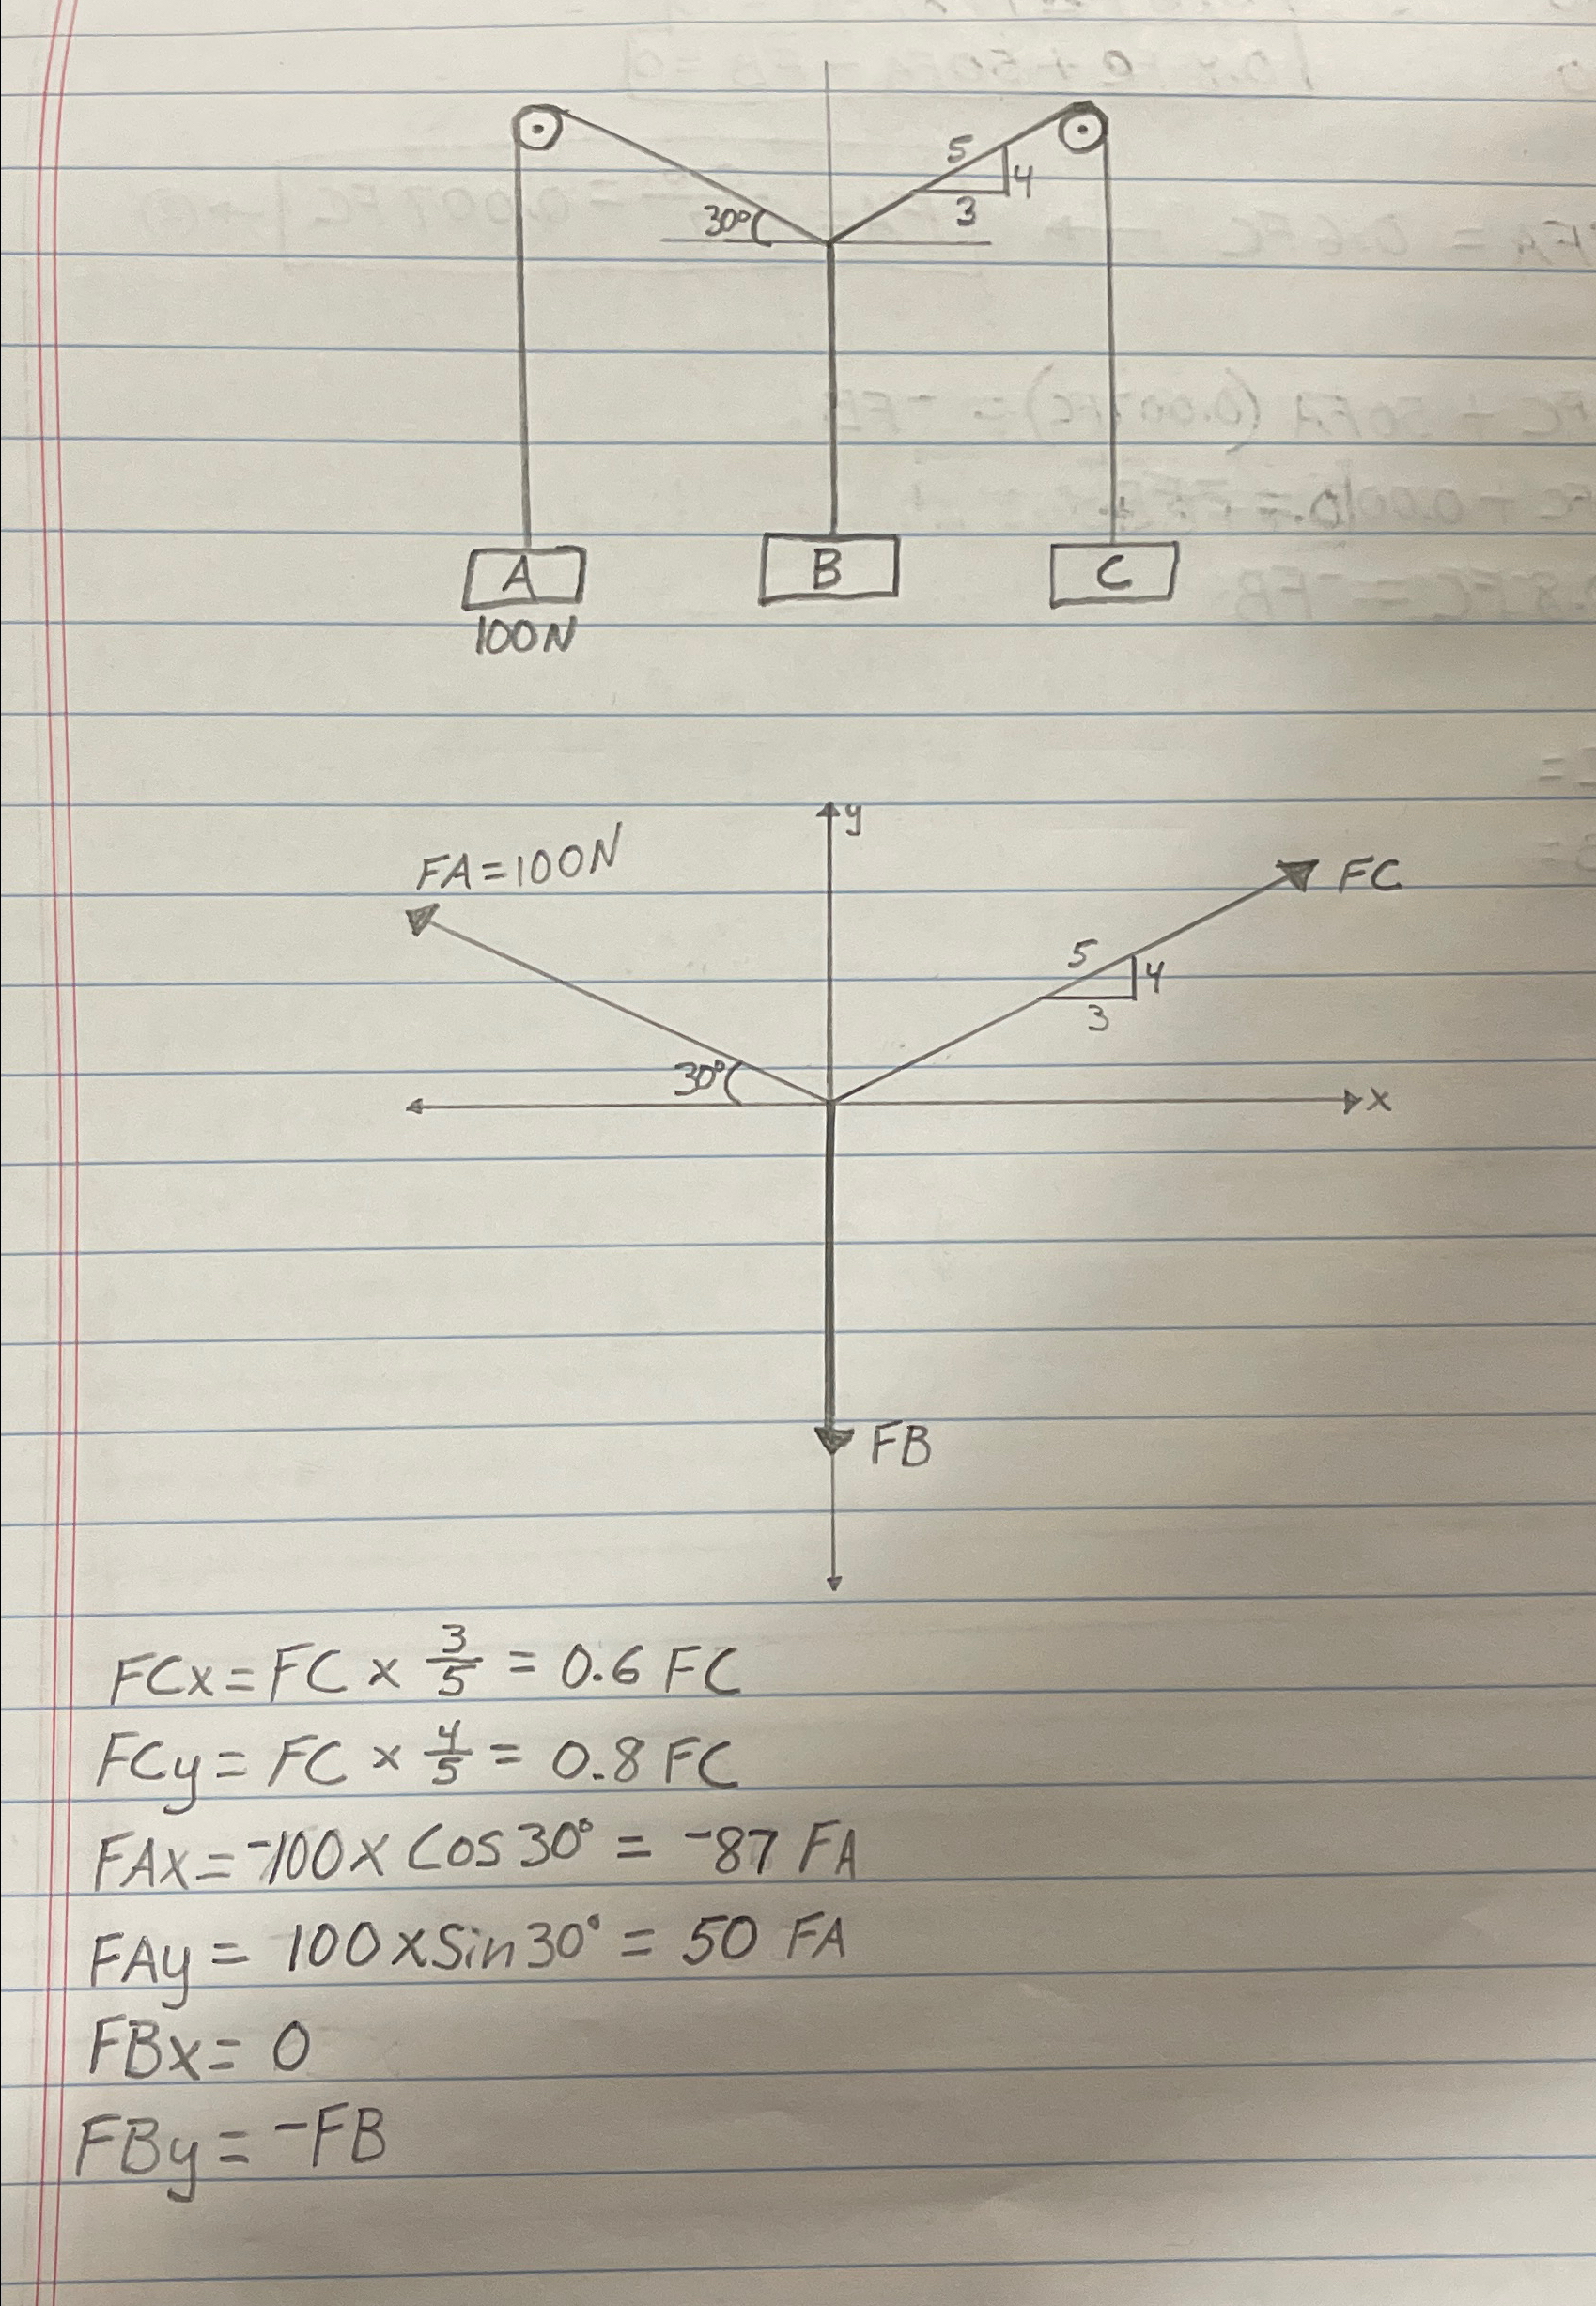 5
4
3
30°
A
B
C
100N
y
FA=100N
FC
5
4
3
30°
x
FB
FCx = FC x 3/5 = 0.6 FC
FCy = FC x 4/5 = 0.8 FC
FAx = -100 x Cos 30° = -87 FA
FAy = 100 x Sin 30° = 50 FA
FBx = 0
FBy = -FB